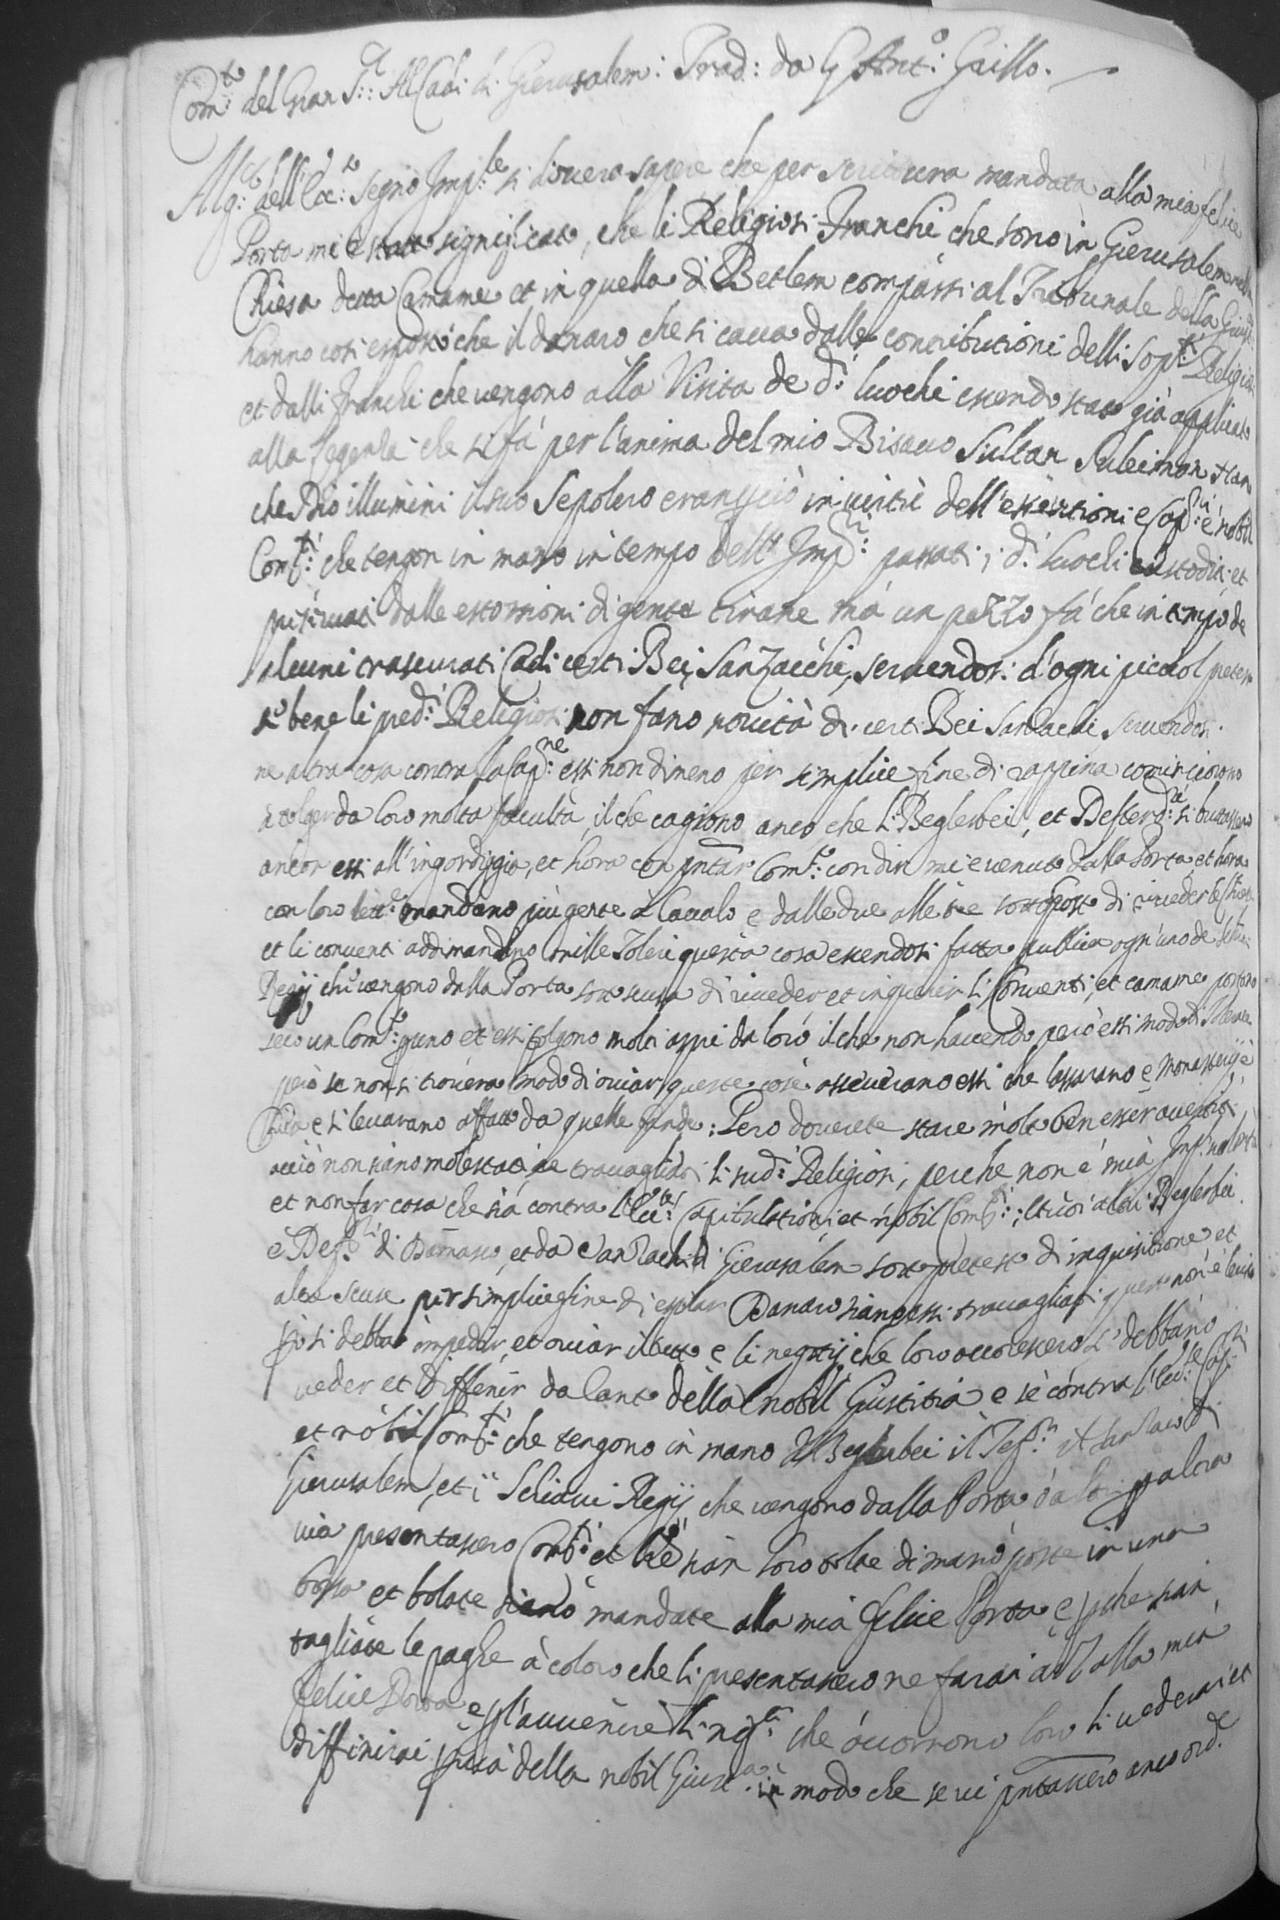 Com.to del Gran S.r Al Cadi di Gierusalem: Trad: da G Ant.o Grillo.
All' g.to dell' Ecc.o segno Imp.le si dovera sapere che per scrittura mandata alla mia felice
Porta mi è stato significato, che li Religiosi Franchi che sono in Gierusalem nella
Chiesa detta Camame et in quella di Betlem comparsi al Tribunale della Giust.a
hanno così esposto che il danaro che si cava dalle contributioni delli sop.ti Religiosi
et dalli Franchi che vengono alla Visita de d.i luochi essendo stato già applicato
alla legenda che si fà per l'anima del mio Bisavo Sultan Suleiman Han
che Dio illumini il suo Sepolcro erano in virtù dell'essentioni e Cap.ni e nobil
Com.ti che tengon in mano in tempo delli Imp.ri passati, i d.i luochi custoditi et
preservati dalle estorsioni di gente tirane mà un pezzo fà che in tempo de
alcuni trascurati Cadi certi Bei, Sanzacchi, servendosi d'ogni picciol pretesto
se bene li pred.i Religiosi non fano novità di certi Bei Sanzachi servendosi
ne altra cosa contra la Cap.ne essi nondimeno per simplice fine di rappina cominciorono
à tolger da loro molta facultà, il che cagionò anco che li Beglerbei, et Defterd.ri si buttassero
ancor essi all'ingordiggia, et hora con pntar Com.to con dir mi è venuto dalla Porta, et hora
con loro lett.e mandano più gente à Cavalo e dalle due alle tre sotto scosa di riveder le Chiese
et li conventi addimandano mille Toleri questa cosa essendosi fatta publica ogn'uno de Schiavi
Regij che vengono dalla Porta sotto scusa di riveder et inquirir li Conventi, et camame portano
seco un Com.to p uno et essi tolgono molti aspri da loro il che non havendo però essi modo di tolerare
però se non si trovera modo di oviar queste cose asseverano essi che lassarano e Monasterij e
Chiesa e si levarano affatto da quelle bande: Però doverete stare molto ben esser avertito,
acciò non siano molestati ne travagliati li sud.i Religiosi, perche non è mia Imp.l volontà
et non far cosa che sia contra l'Ecc.te Capitulationi et nobil Com.ti; li tuoi alcuni Beglerbei
è Def.ri di Damasco, et da Sanzachi di Gierusalem sotto pretesto di inquisitione et
altre scuse per simplice fine di espilar Danaro siano essi travagliati questo non è lecito
p.ciò si debba impedir, et oviar il tutto e li negotij che loro occoressero si debbano
veder et diffenir da canto della nobil Giustitia e sè contra l'Ecc.te Cap.ni
et nobil Com.ti che tengono in mano il Beglerbei il Tef.r et Sanzaco di
Gierusalem, et ij Schiavi Regij che vengono dalla Porta ò da altri p altra
via presentassero Com.ti et l're sian loro tolte di mano poste in una
borsa et bolate siano mandate alla mia felice Porta e p che sian
tagliate le paghe à coloro che li presentassero ne farai arz alla mia
felice Porta e p l'avvenire li neg.tij che occorrono loro li vederai et
diffinirai p via della nobil Giust.a in modo che se vi pntassero anco ord.e